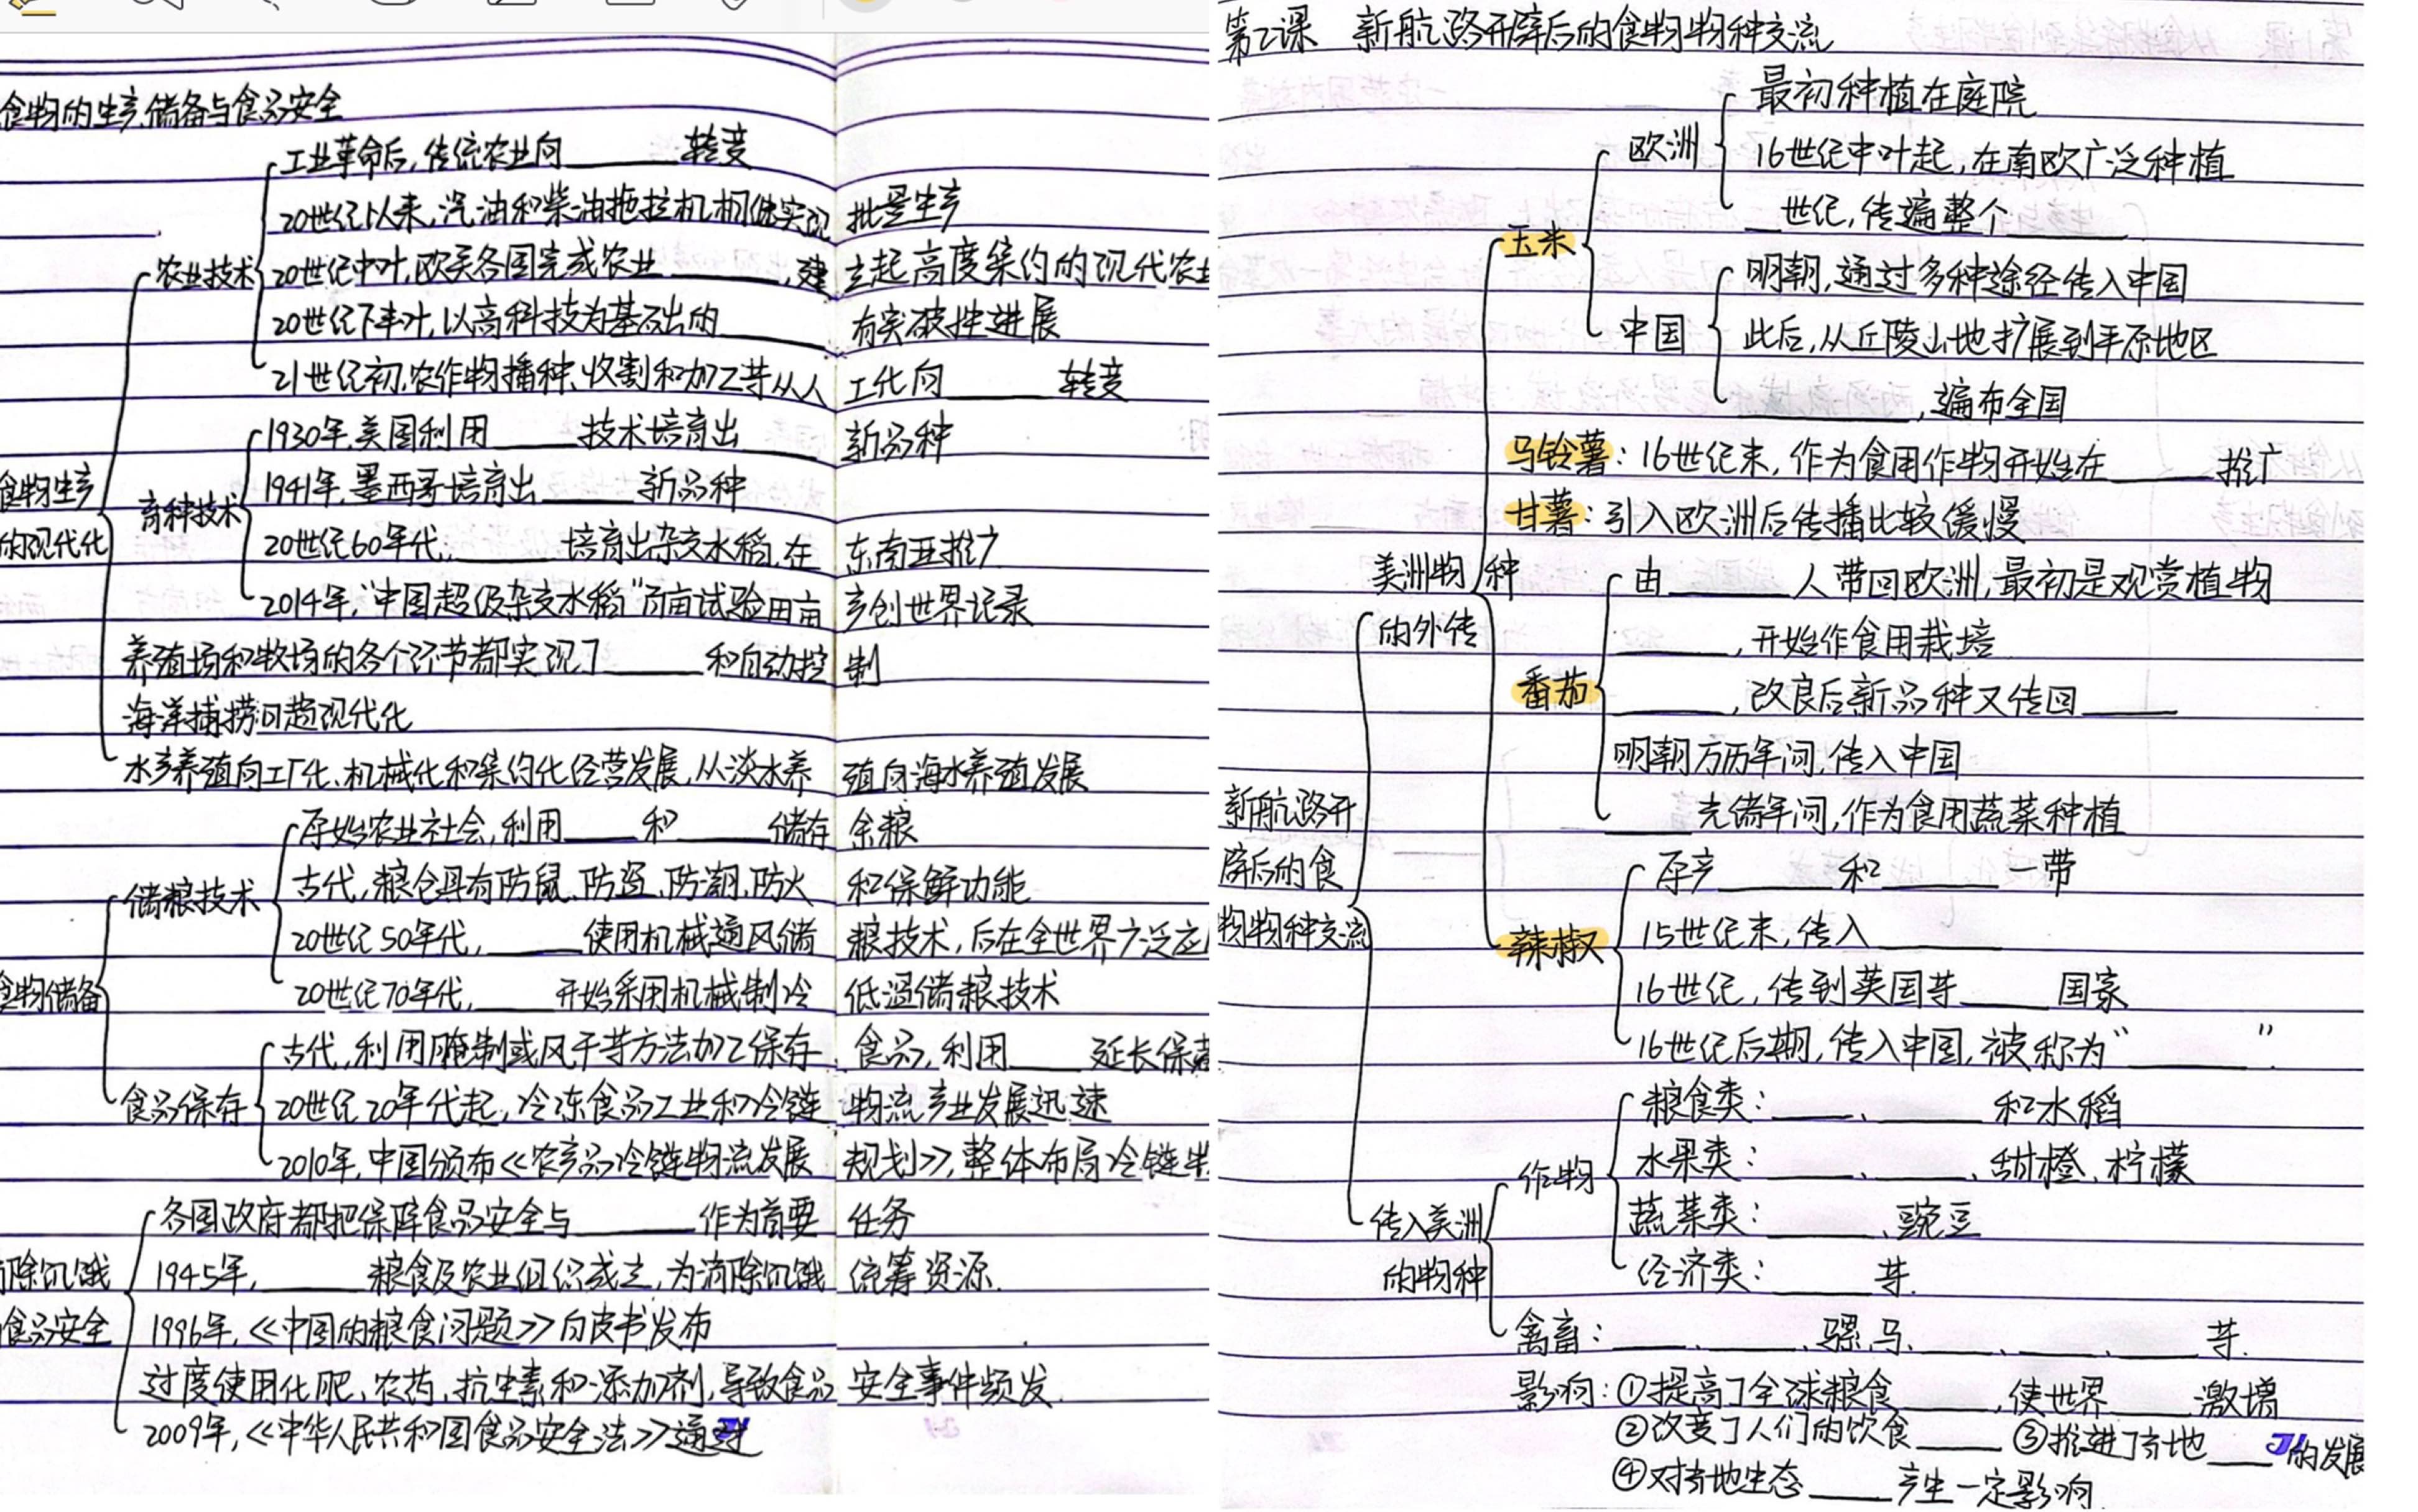 食物的生产、储备与食品安全
工业革命后,传统农业向______转变
20世纪以来,汽油和柴油拖拉机相继实现批量生产
农业技术
20世纪中叶,欧美各国完成农业______,建立起高度集约的现代农业
20世纪下半叶,以高科技为基础的______有突破性进展
21世纪初,农作物播种、收割和加工等从人工化向______转变
1930年,美国利用______技术培育出______新品种
食物生产
的现代化
1941年,墨西哥培育出______新品种
育种技术
20世纪60年代,______培育出杂交水稻,在东南亚推广
2014年,“中国超级杂交水稻”百亩试验田亩产创世界记录
养殖场和牧场的各个环节都实现了______和自动控制
海洋捕捞日趋现代化
水产养殖向工厂化、机械化和集约化经营发展,从淡水养殖向海水养殖发展
原始农业社会,利用____和____储存余粮
储粮技术
古代,粮仓具有防鼠、防盗、防潮、防火和保鲜功能
20世纪50年代,______使用机械通风储粮技术,后在全世界广泛应
食物储备
20世纪70年代,____开始采用机械制冷低温储粮技术
古代,利用腌制或风干等方法加工保存食品,利用____延长保
食品保存
20世纪20年代起,冷冻食品工业和冷链物流产业发展迅速
2010年,中国颁布《农产品冷链物流发展规划》,整体布局冷链
各国政府都把保障食品安全与______作为首要任务
除饥饿
食品安全
1945年,______粮食及农业组织成立,为消除饥饿统筹资源.
1996年,《中国的粮食问题》白皮书发布
过度使用化肥、农药、抗生素和添加剂,导致食品安全事件频发.
2009年,《中华人民共和国食品安全法》通过
第2课 新航路开辟后的食物物种交流
最初种植在庭院
欧洲
16世纪中叶起,在南欧广泛种植
__世纪,传遍整个______
玉米
明朝,通过多种途径传入中国
中国
此后,从丘陵山地扩展到平原地区
________,遍布全国
马铃薯:16世纪末,作为食用作物开始在______推广
甘薯:引入欧洲后传播比较缓慢
美洲物种
的外传
由______人带回欧洲,最初是观赏植物
______,开始作食用栽培
番茄
______,改良后新品种又传回______
明朝万历年间,传入中国
____光绪年间,作为食用蔬菜种植
新航路开
辟后的食
物物种交流
原产______和______一带
15世纪末,传入______
辣椒
16世纪,传到英国等____国家
16世纪后期,传入中国,被称为“______”.
粮食类:____、____和水稻
水果类:____、____、甜橙、柠檬
作物
蔬菜类:____、豌豆
传入美洲
的物种
经济类:____等.
禽畜:____、____、骡、马、____、____、____等.
影响:①提高了全球粮食____,使世界____激增
②改变了人们的饮食____ ③推进了各地____的发展
④对各地生态____产生一定影响